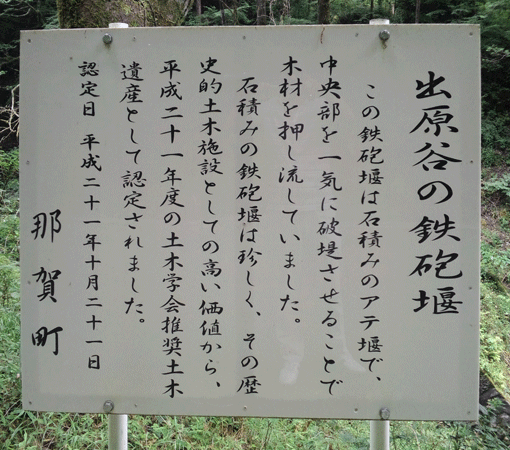 出原谷の鉄砲堰
この鉄砲堰は石積みのアテ堰で、
中央部を一気に破堤させることで
木材を押し流していました。
石積みの鉄砲堰は珍しく、その歴
史的土木施設としての高い価値から、
平成二十一年度の土木学会推奨土木
遺産として認定されました。
認定日 平成二十一年十月二十一日
那賀町